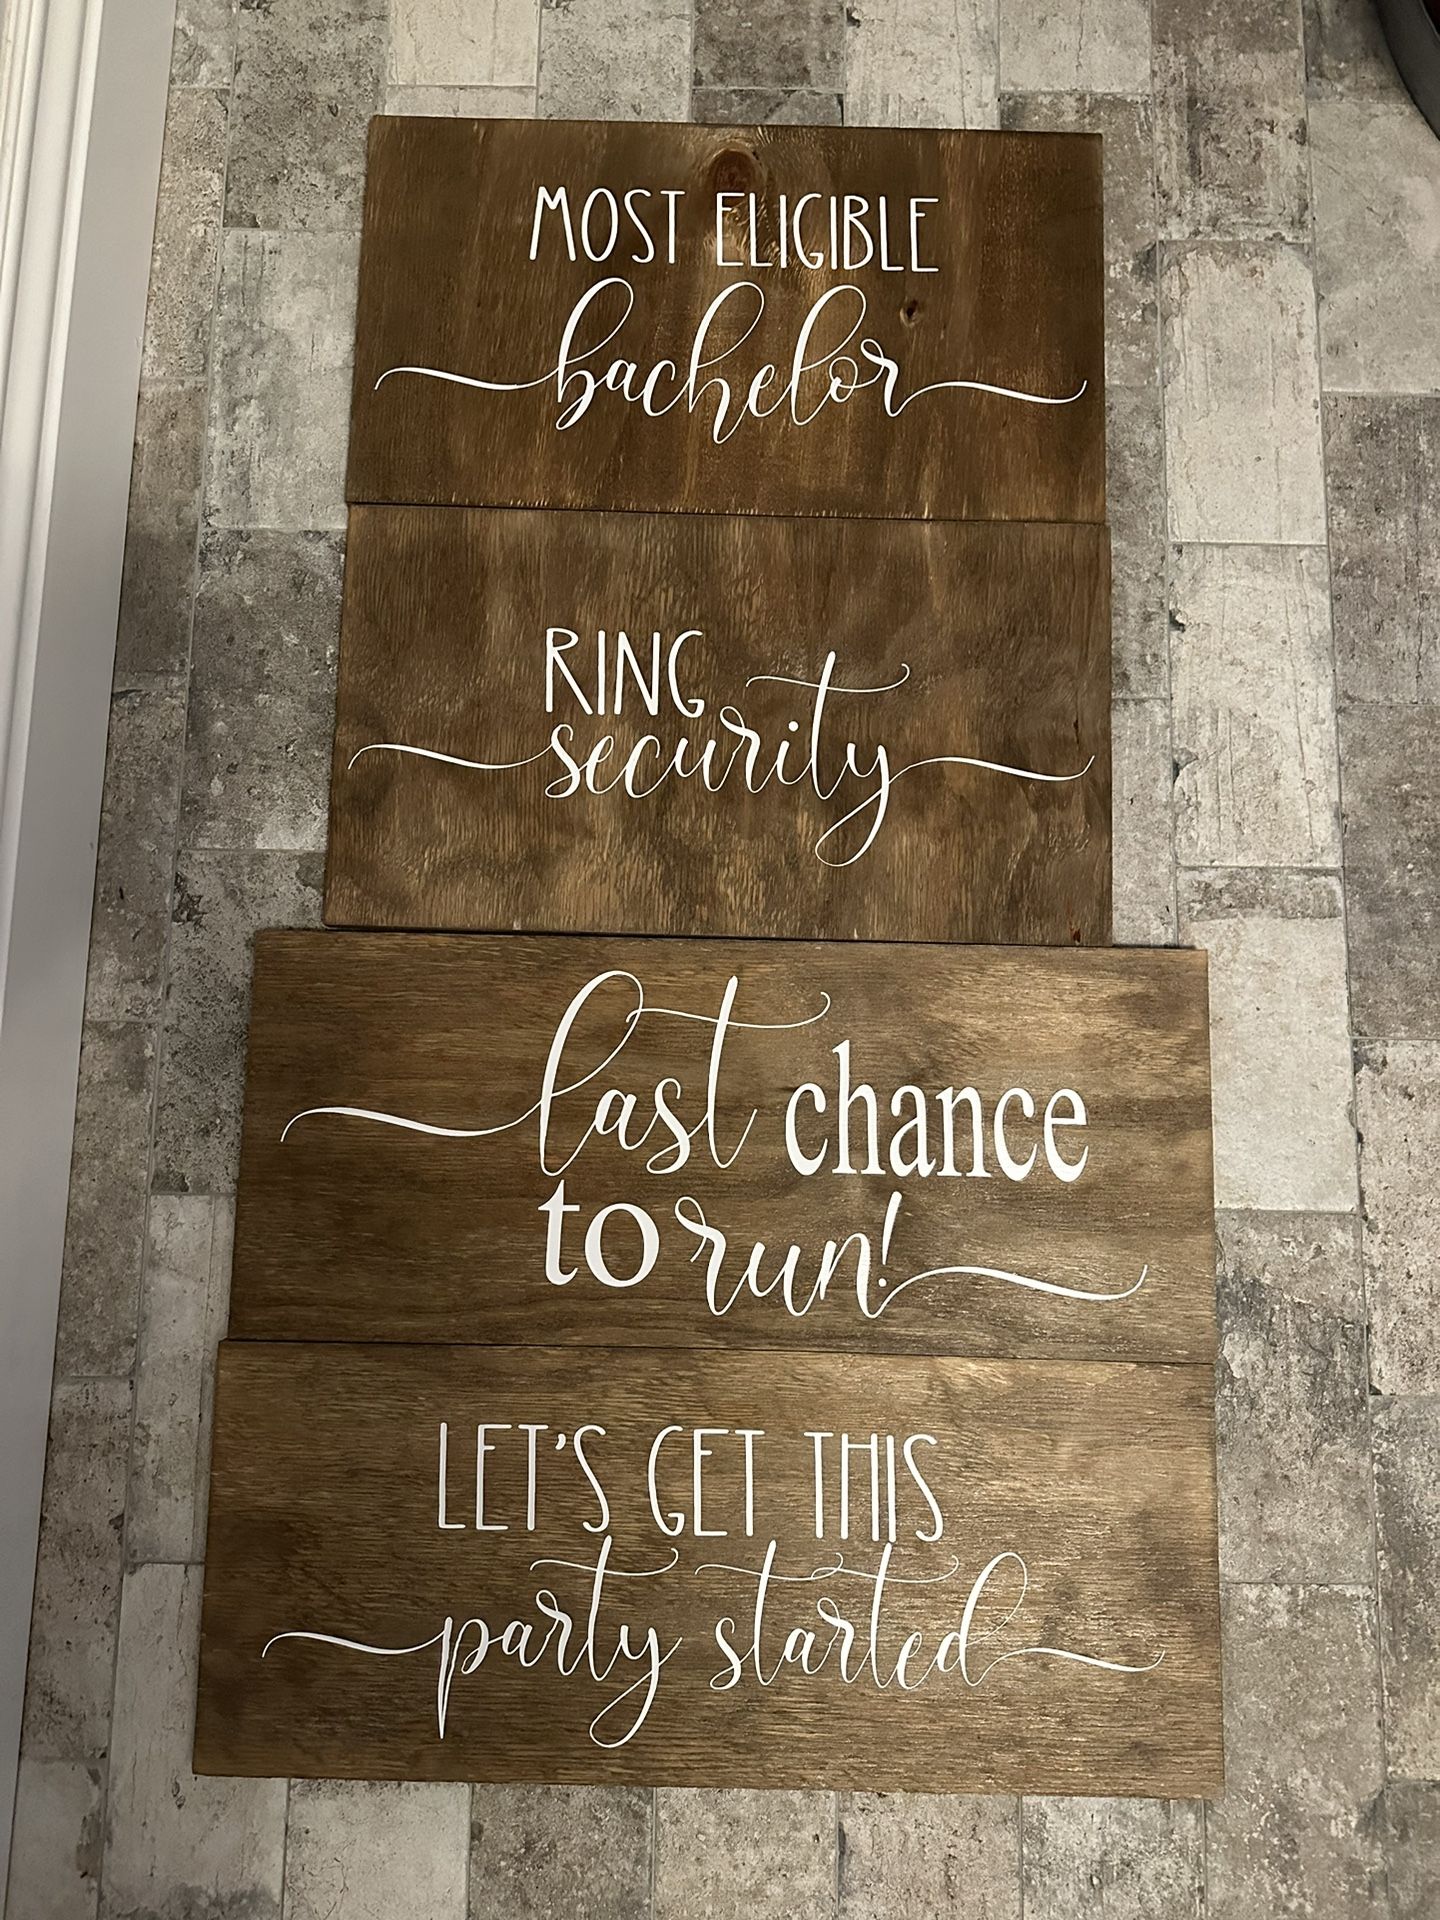 MOST ELIGIBLE
bachelor
RING
security
last chance
to run!
LET'S GET THIS
party started